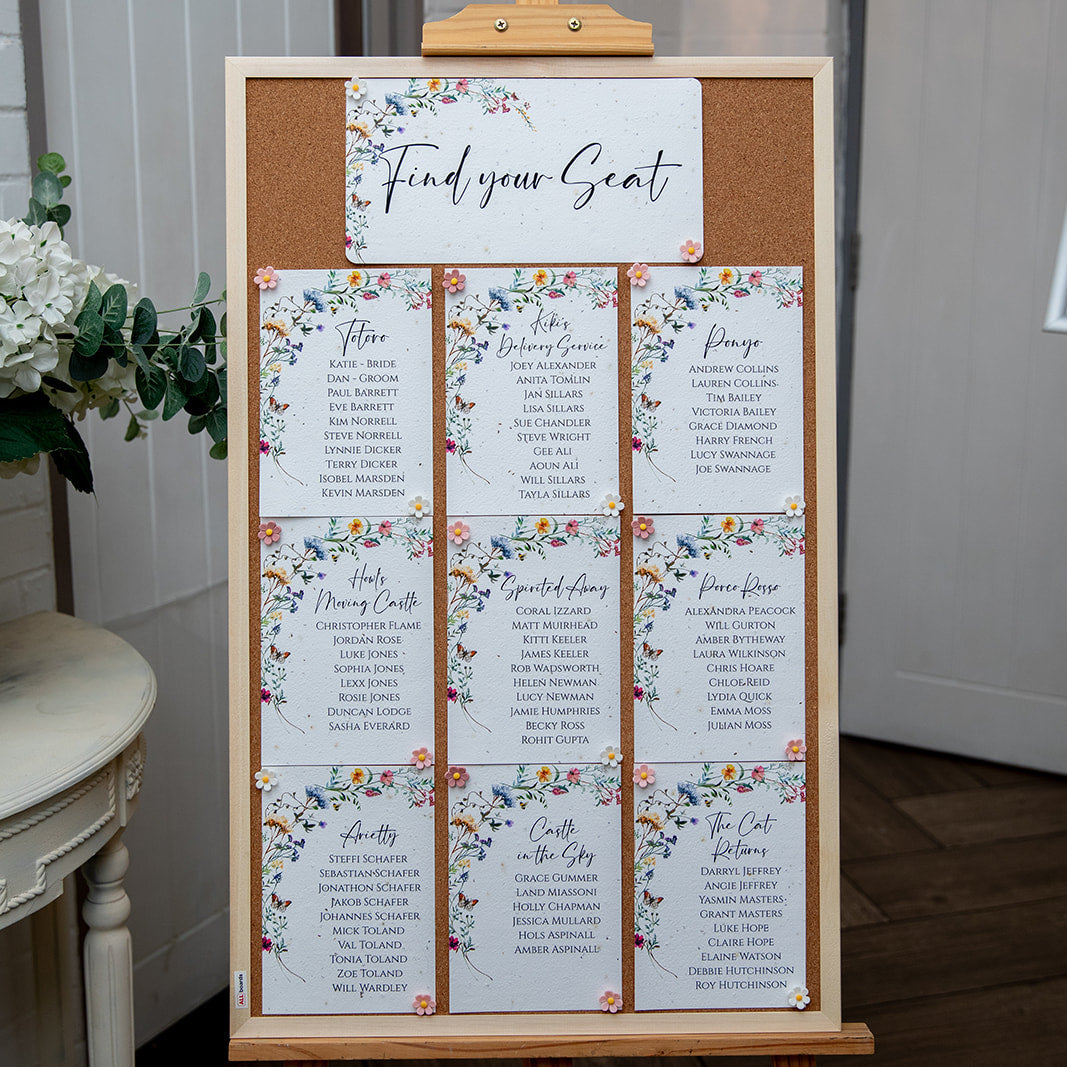 Find your Seat
Totoro
KATIE - BRIDE
DAN - GROOM
PAUL BARRETT
EVE BARRETT
KIM NORRELL
STEVE NORRELL
LYNNIE DICKER
TERRY DICKER
ISOBEL MARSDEN
KEVIN MARSDEN
Kiki's
Delivery Service
JOEY ALEXANDER
ANITA TOMLIN
JAN SILLARS
LISA SILLARS
SUE CHANDLER
STEVE WRIGHT
GEE ALI
AOUN ALI
WILL SILLARS
TAYLA SILLARS
Ponyo
ANDREW COLLINS
LAUREN COLLINS
TIM BAILEY
VICTORIA BAILEY
GRACE DIAMOND
HARRY FRENCH
LUCY SWANNAGE
JOE SWANNAGE
Howl's
Moving Castle
CHRISTOPHER FLAME
JORDAN ROSE
LUKE JONES
SOPHIA JONES
LEXX JONES
ROSIE JONES
DUNCAN LODGE
SASHA EVERARD
Spirited Away
CORAL IZZARD
MATT MUIRHEAD
KITTI KEELER
JAMES KEELER
ROB WADSWORTH
HELEN NEWMAN
LUCY NEWMAN
JAMIE HUMPHRIES
BECKY ROSS
ROHIT GUPTA
Porco Rosso
ALEXANDRA PEACOCK
WILL GURTON
AMBER BYTHEWAY
LAURA WILKINSON
CHRIS HOARE
CHLOE REID
LYDIA QUICK
EMMA MOSS
JULIAN MOSS
Arietty
STEFFI SCHAFER
SEBASTIAN SCHAFER
JONATHON SCHAFER
JAKOB SCHAFER
JOHANNES SCHAFER
MICK TOLAND
VAL TOLAND
TONIA TOLAND
ZOE TOLAND
WILL WARDLEY
Castle
in the Sky
GRACE GUMMER
LAND MIASSONI
HOLLY CHAPMAN
JESSICA MULLARD
HOLS ASPINALL
AMBER ASPINALL
The Cat
Returns
DARRYL JEFFREY
ANGIE JEFFREY
YASMIN MASTERS
GRANT MASTERS
LUKE HOPE
CLAIRE HOPE
ELAINE WATSON
DEBBIE HUTCHINSON
ROY HUTCHINSON
ALL boards